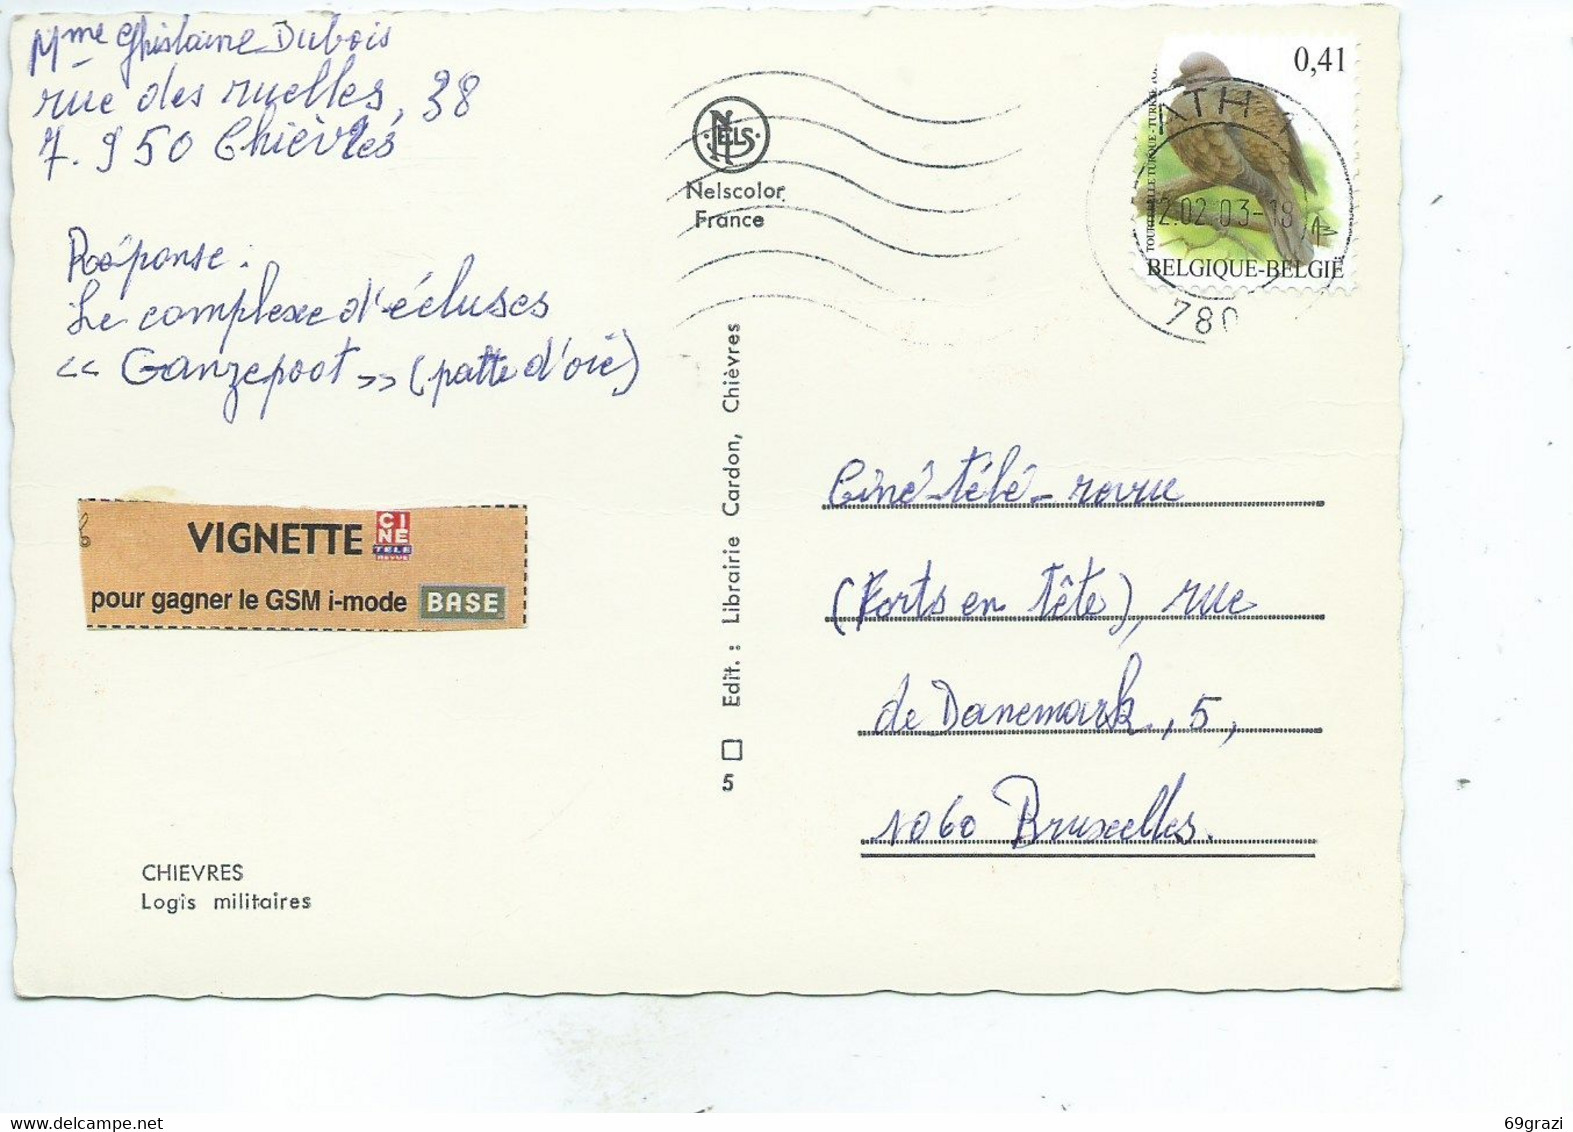 Mme Ghislaine Dubois
rue des ruelles, 38
7.950 Chièvres
Réponse :
Le complexe d'écluses
<< Ganzepoot >> (patte d'oie)
VIGNETTE CINE TELE REVUE
pour gagner le GSM i-mode BASE
CHIEVRES
Logis militaires
NELS
Nelscolor
France
Edit. : Librairie Cardon, Chièvres
5
0,41
TOURTERELLE TURQUE - TURKSE
BELGIQUE-BELGIË
ATH 1
2.02.03-18
780
Ciné-télé-revue
(Forts en tête), rue
de Danemark, 5,
1060 Bruxelles.
www.delcampe.net
69grazi